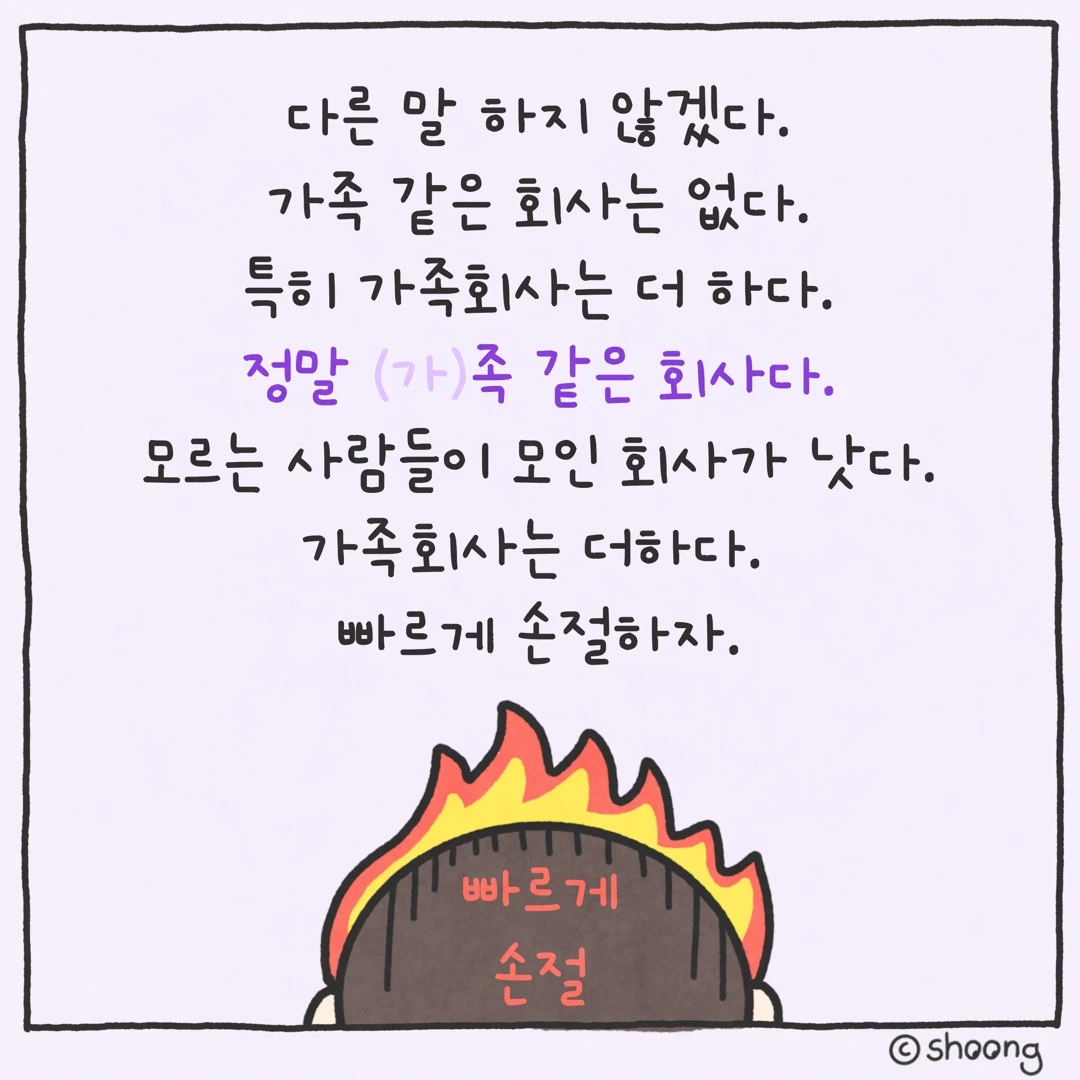 다른 말 하지 않겠다.
가족 같은 회사는 없다.
특히 가족회사는 더 하다.
정말 (가)족 같은 회사다.
모르는 사람들이 모인 회사가 낫다.
가족회사는 더하다.
빠르게 손절하자.
빠르게
손절
©shoong